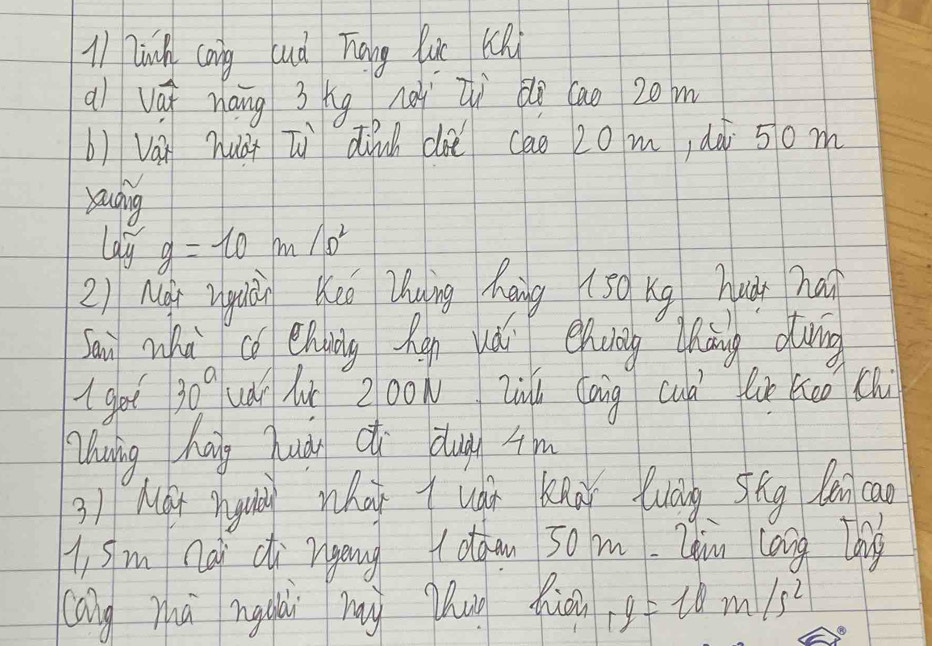 1) Tính công của trọng lực khi
a) Vật nặng 3 kg rơi từ độ cao 20 m
b) Vật trượt từ đỉnh dốc cao 20 m, dài 50 m
xuống
Lấy g = 10 m/s²
2) Một người kéo thùng hàng 150 kg trượt trên
sàn nhà có phương hợp với phương thẳng đứng
1 góc 30° với lực 200N. Tính công của lực kéo khi
thùng hàng trượt đi được 4m
3) Một người nhấc 1 vật khối lượng 5kg lên cao
1,5m rồi đi ngang 1 đoạn 50 m. Tìm công tổng
cộng mà người này thực hiện, g = 10 m/s²